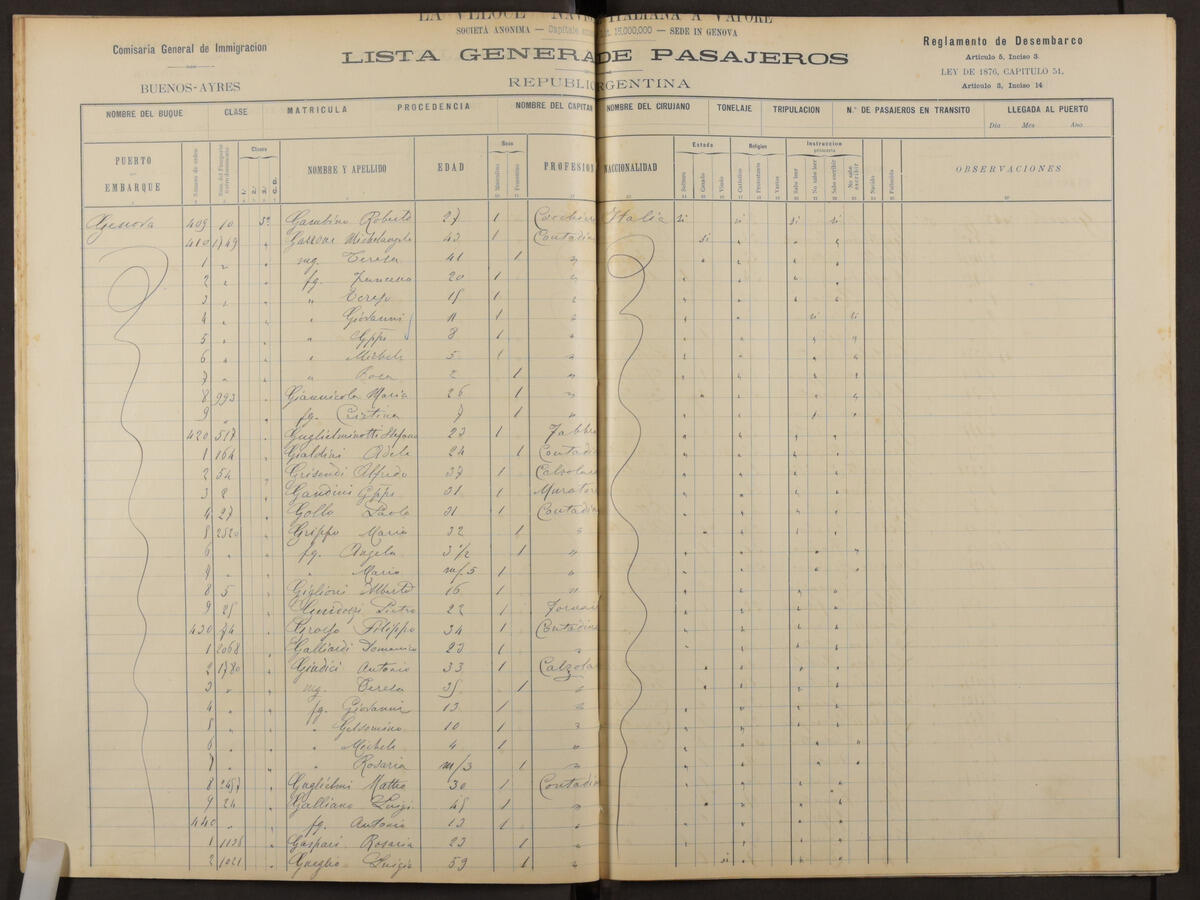 LA VELOCE NAV ITALIANA A VAPORE
SOCIETÀ ANONIMA — Capitale 15,000,000 — SEDE IN GENOVA
Comisaria General de Immigracion
BUENOS-AYRES
LISTA GENERA DE PASAJEROS
REPUBLIC RGENTINA
Reglamento de Desembarco
Articulo 5, Inciso 3
LEY DE 1876, CAPITULO 51,
Articulo 3, Inciso 14
NOMBRE DEL BUQUE CLASE MATRICULA PROCEDENCIA NOMBRE DEL CAPITAN NOMBRE DEL CIRUJANO TONELAJE TRIPULACION N.º DE PASAJEROS EN TRANSITO LLEGADA AL PUERTO
Dia Mes Ano
PUERTO EMBARQUE Número de orden Clases 1.ª 2.ª 3.ª NOMBRE Y APELLIDO EDAD Sexo Masculino Femenino PROFESION NACCIONALIDAD Estado Soltero Casado Viudo Religion Catolico Protestante Varios Instruccion primaria Sabe leer No sabe leer Sabe escribir No sabe escribir OBSERVACIONES
Genova 409 10 3ª Gambino Roberto 27 1 Italia si si si si
410 1749 Garrone Michelangelo 43 1 Contadin si
1 mg. Teresa 41 1
2 fg. Francesco 20 1
3 15 1
4 Giovanni 11 1 si si
5 Gppe 8 1
6 Michele 5 1
7 Rosa 2 1
8 993 Giannicola Maria 26 1
9 fg. Cristina 7 1
420 517 Guglielminotti Stefano 23 1 Fabbro
1 164 Gialdini Adele 24 1 Contadin
2 54 Grisendi Alfredo 37 1 Calzolar
3 2 Gandini Gppe 31 1 Murator
4 27 Gollo Paolo 31 1 Contadin
2520 Grippo Maria 32 1
6 fg. Angela 3 1/2 1
Mario m/5 1
8 5 Giglioni Alberto 16 1
9 25 Pietro 22 1 Fornai
430 74 Grosso Filippo 34 1 Contadin
1 2068 Galliardi Domenico 23 1
2 1780 Giudici Antonio 33 1 Calzola
3 mg. Teresa 35 1
4 fg. Giovanni 13 1
5 Gelsomino 10 1
6 Michele 4 1
7 Rosaria m/3 1
8 2457 Guglielmi Matteo 30 1 Contadin
9 24 Galliano Luigi 45 1
440 fg. Antonio 13 1
1 1136 Gaspari Rosaria 23 1
2 1021 Luigia 59 1 si